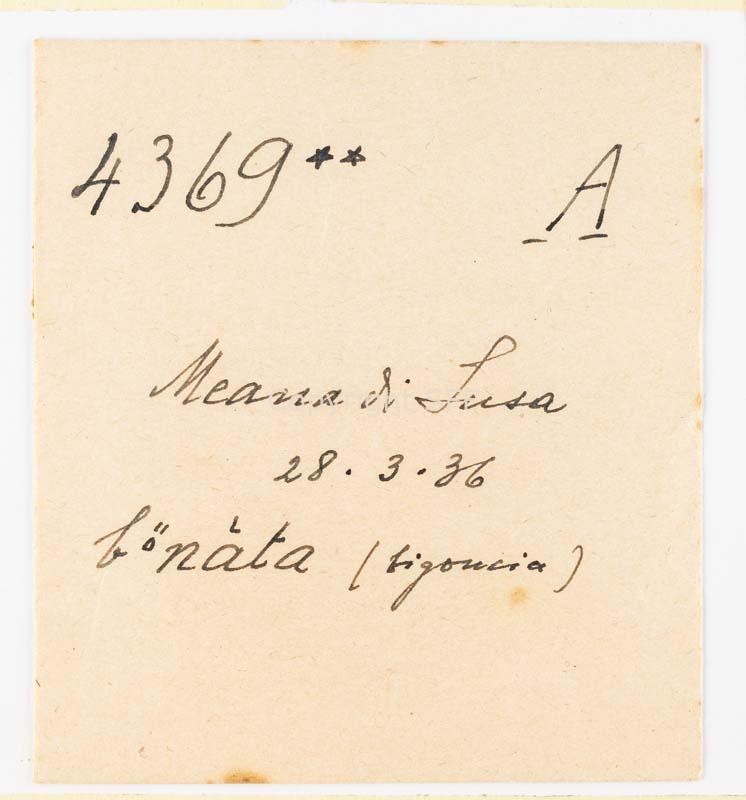 4369** A
Meana di Susa
28.3.36
bönàta (bigoncia)